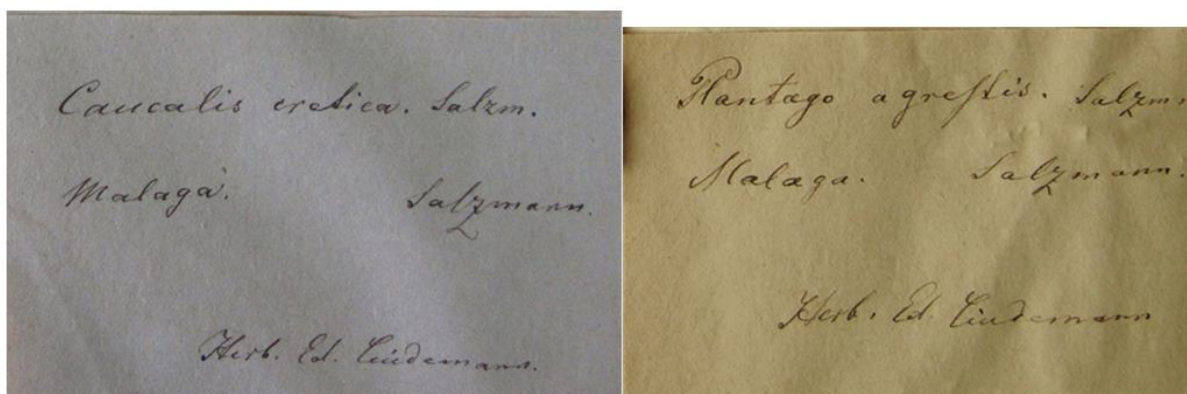 Caucalis cretica. Salzm.
Malaga.
Salzmann.
Herb. Ed. Lindemann.
Plantago agreſtis. Salzm.
Malaga.
Salzmann.
Herb. Ed. Lindemann